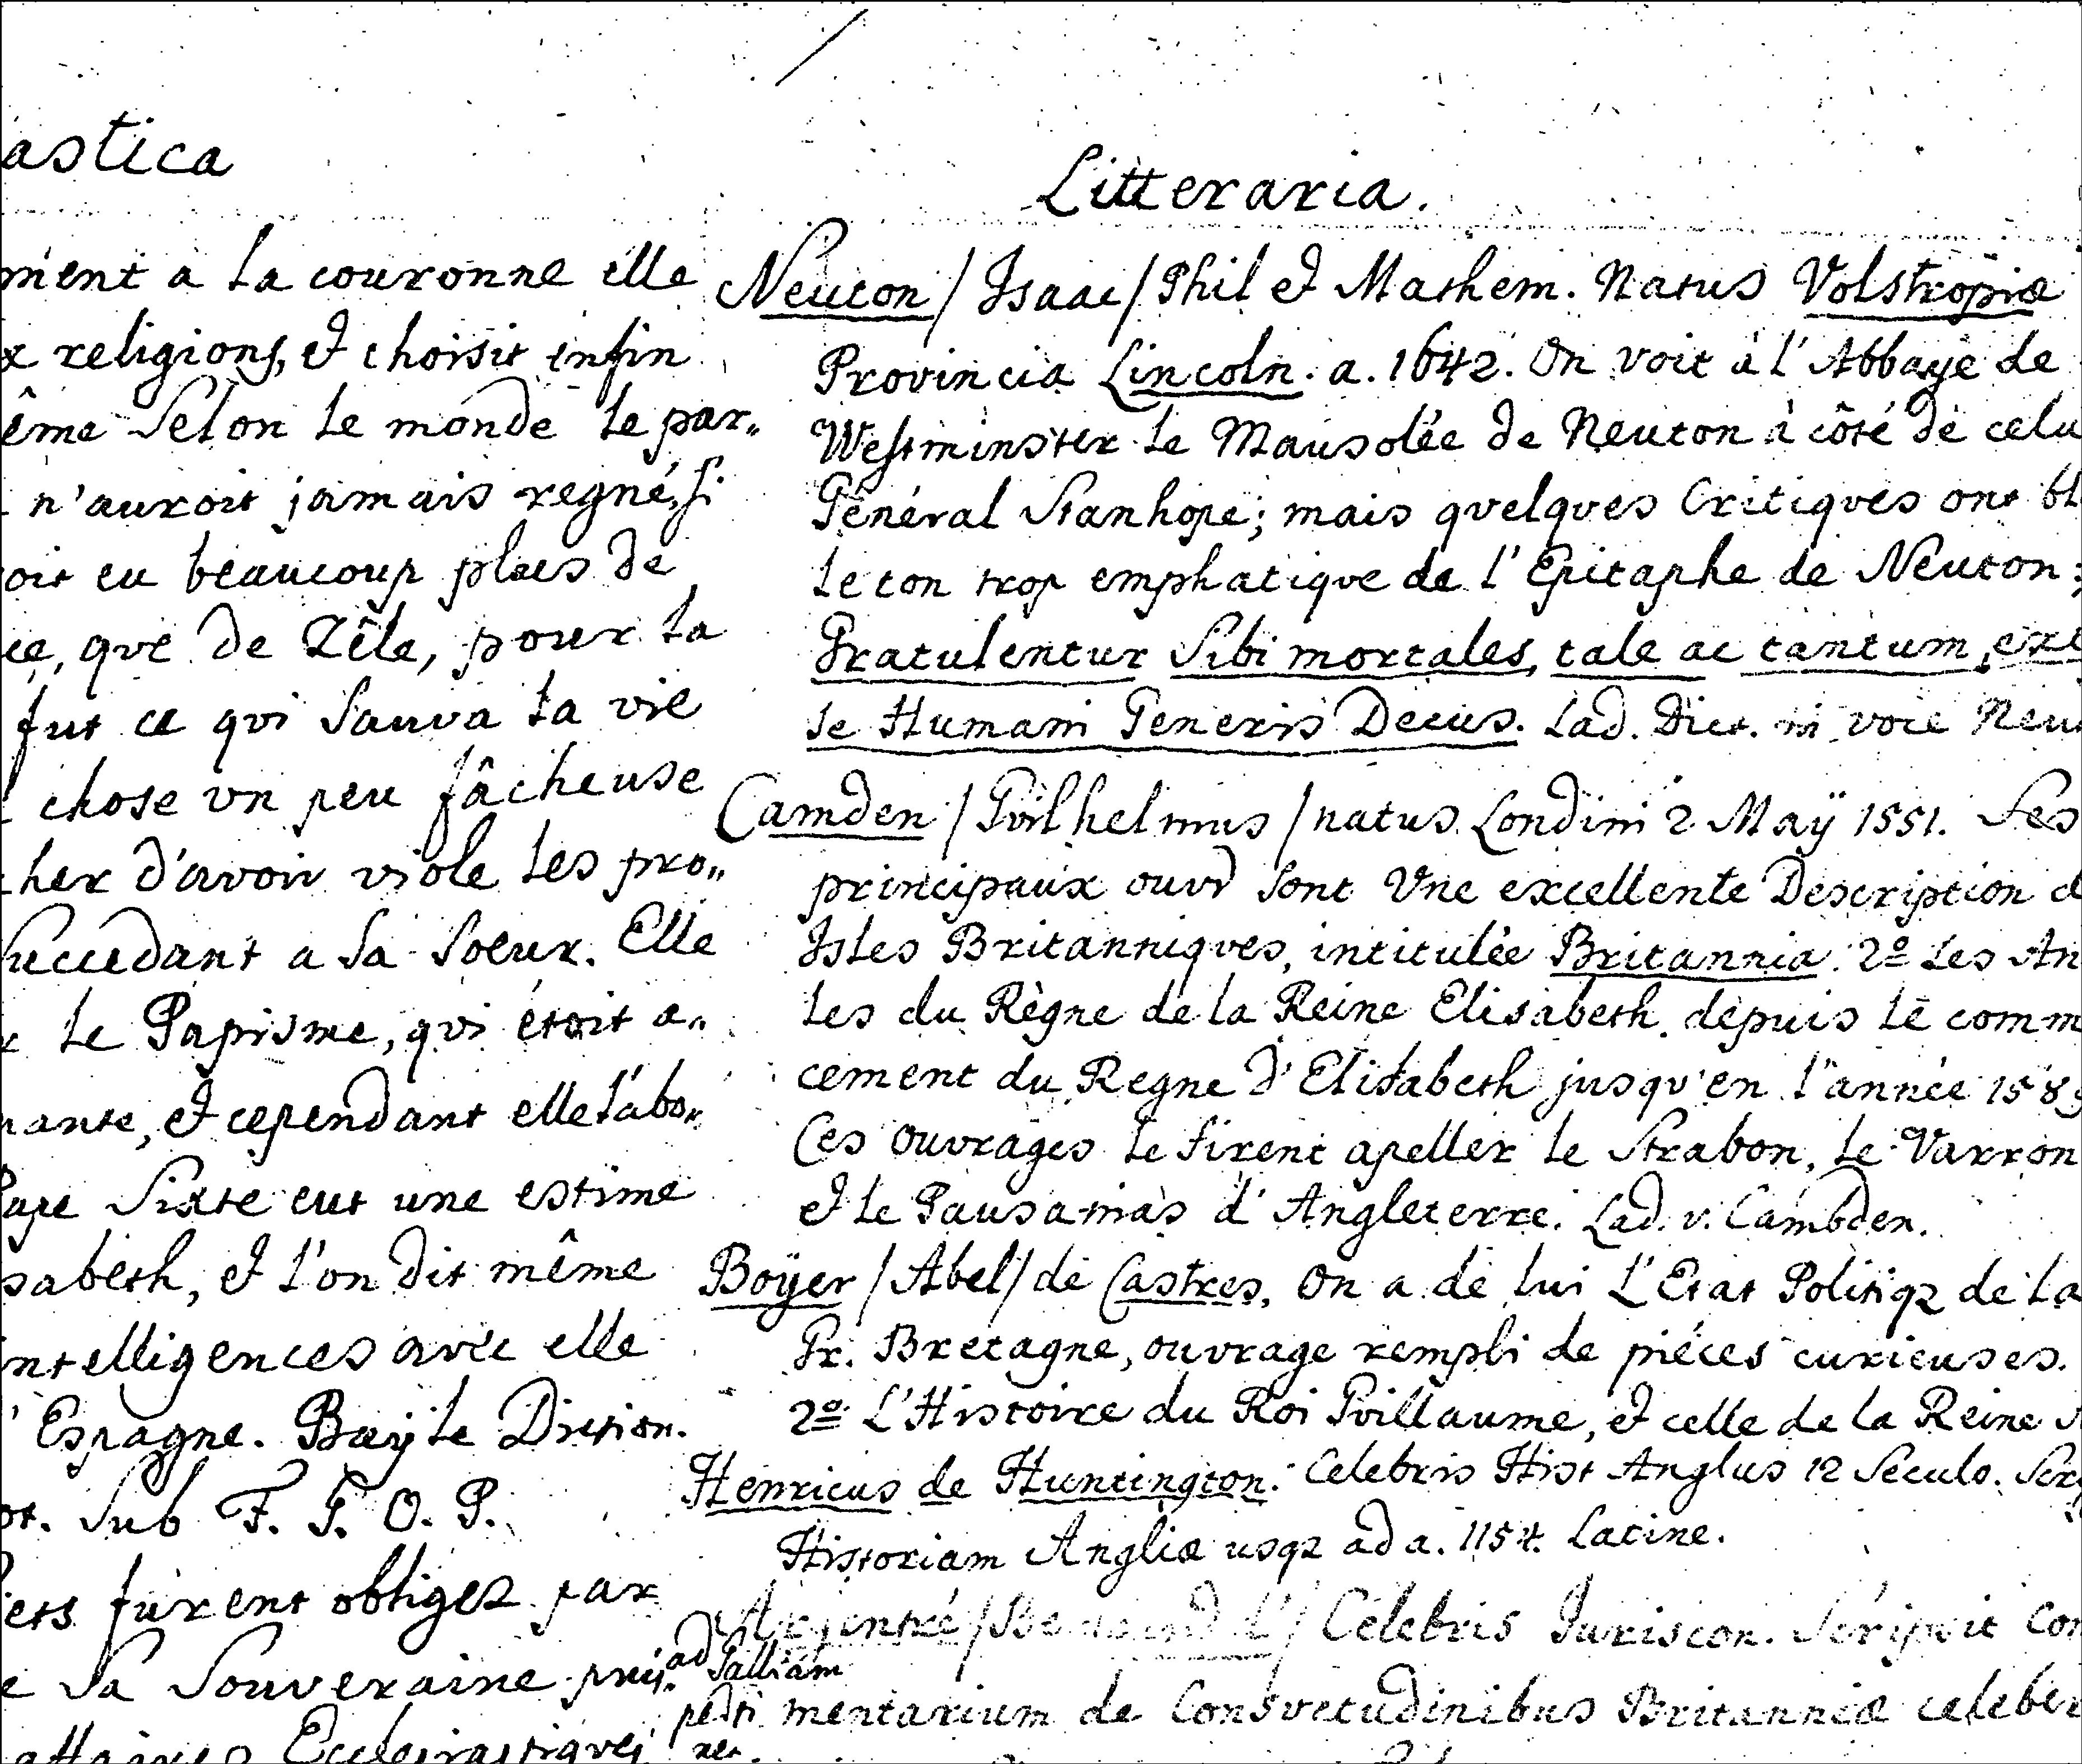 astica
ment a la couronne elle
x religions, et choisit enfin
ême selon le monde le par„
n'auroit jamais regné, si
oit eu beaucoup plus de
ce, que de Zêle, pour la
fut ce qui sauva la vie
chose un peu fâcheuse
cher d'avoir viole les pro„
succedant a sa soeur. Elle
le Papisme, qui étoit a„
nante, et cependant elle l'abo„
Pape Sixte eut une estime
sabeth, et l'on dit même
intelligences avec elle
Espagne. Bayle Diction.
ot. sub F. G. O. P.
iers furent obligez par
e sa Souveraine
affaires Ecclesiastiques
Litteraria.
Neuton / Isaac / Phil et Mathem. Natus Volstropiæ
Provincia Lincoln. a. 1642. On voit à l'Abbaye de
Westminster le Mausolée de Neuton à côté de celu
Général Stanhope; mais quelques Critiques ont bl
le ton trop emphatique de l'Epitaphe de Neuton:
Gratulentur sibi mortales, tale ac tantum, exti
se Humani Generis Decus. Lad. Dict. in voce Neu
Camden / Guilhelmus / natus Londini 2 Maÿ 1551. Ses
principaux ouvr sont Une excellente Description d
Isles Britanniques, intitulée Britannia. 2º Les An
les du Règne de la Reine Elisabeth, depuis le comm
cement du Regne d'Elisabeth jusqu'en l'année 1589
Ces ouvrages le firent apeller le Strabon, le Varron
et le Pausanias d'Angleterre. Lad. v. Cambden.
Boÿer / Abel / de Castres. On a de lui L'Etat Politiq2 de la
Gr. Bretagne, ouvrage rempli de piéces curieuses.
2º L'Histoire du Roi Guillaume, et celle de la Reine
Henricus de Huntington. Celebris Hist Anglus 12 Seculo. Scr
Historiam Angliæ usq2 ad a. 1154. Latine.
Argentré / Bertrand d' / Celebris Juriscon. Scripsit Com
ad Galliam
mentarium de Consvetudinibus Britanniæ celeber